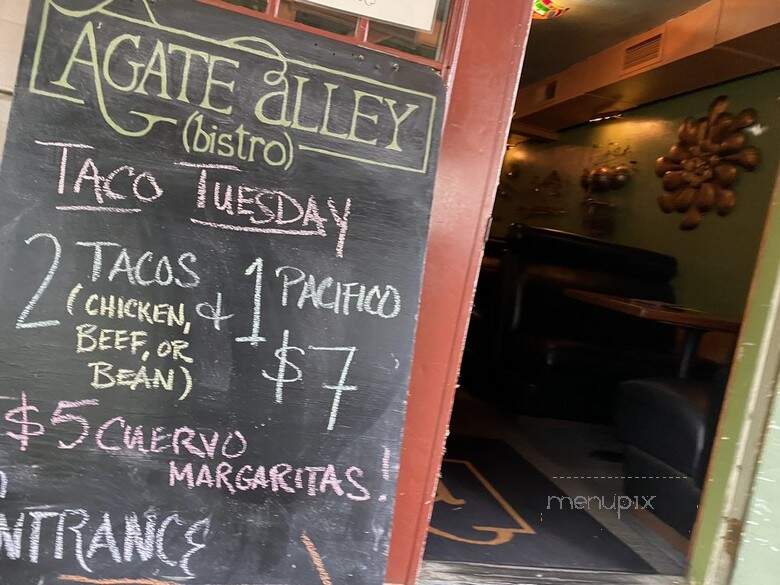 AGATE aLLEY
(bistro)
TACO TUESDAY
2 TACOS & 1 PACIFICO
(CHICKEN,
BEEF, OR
BEAN)
$7
$5 CUERVO
MARGARITAS!
NTRANCE
menupix